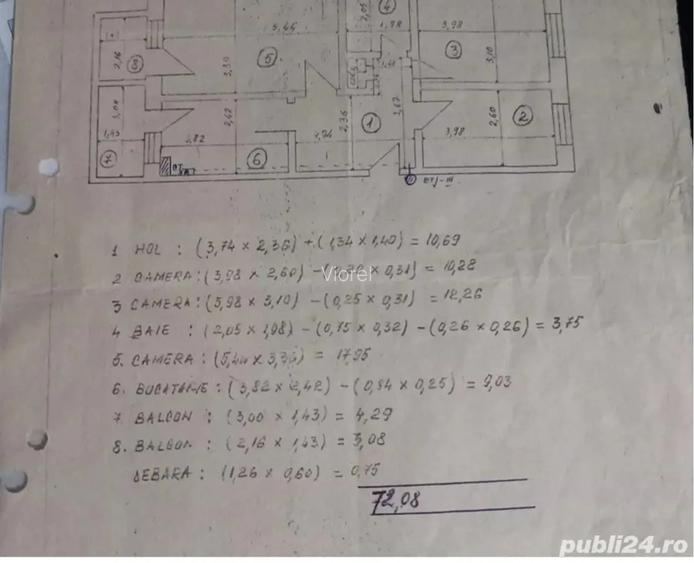 5,45
3,39
5
2,16
8
2,05
4
1,98
3,98
3
3,10
3,00
1,43
7
3,82
2,42
6
3,74
2,36
1
3,98
2,60
2
1 HOL : (3,74 x 2,36) + (1,34 x 1,40) = 10,69
2 CAMERA : (3,98 x 2,60) - ( x 0,31) = 10,28
Viorel
3 CAMERA : (3,98 x 3,10) - (0,25 x 0,31) = 12,26
4 BAIE : (2,05 x 1,98) - (0,75 x 0,32) - (0,26 x 0,26) = 3,75
5. CAMERA : (5,44 x 3,30) = 17,95
6. BUCATARIE : (3,82 x 2,42) - (0,84 x 0,25) = 9,03
7 BALCON : (3,00 x 1,43) = 4,29
8. BALCON : (2,16 x 1,43) = 3,08
DEBARA : (1,26 x 0,60) = 0,75
72,08
publi24.ro